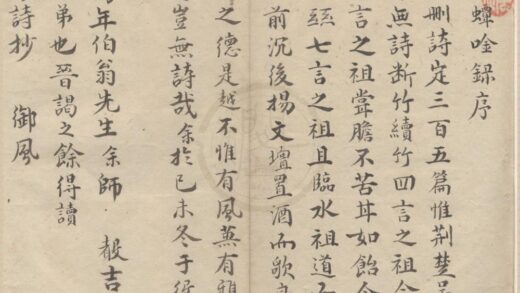 蟫唫錄序
刪詩定三百五篇惟荆楚吳
無詩斷竹續竹四言之祖
言之祖嘗膽不苦甘如飴令
絲七言之祖且臨水祖道
前沉後揚文壇置酒而歌
之德是越不惟有風蒸有雅
豈無詩哉余於己未冬于役
年伯翁先生余師 殽吉
弟也晉謁之餘得讀
詩抄 御風